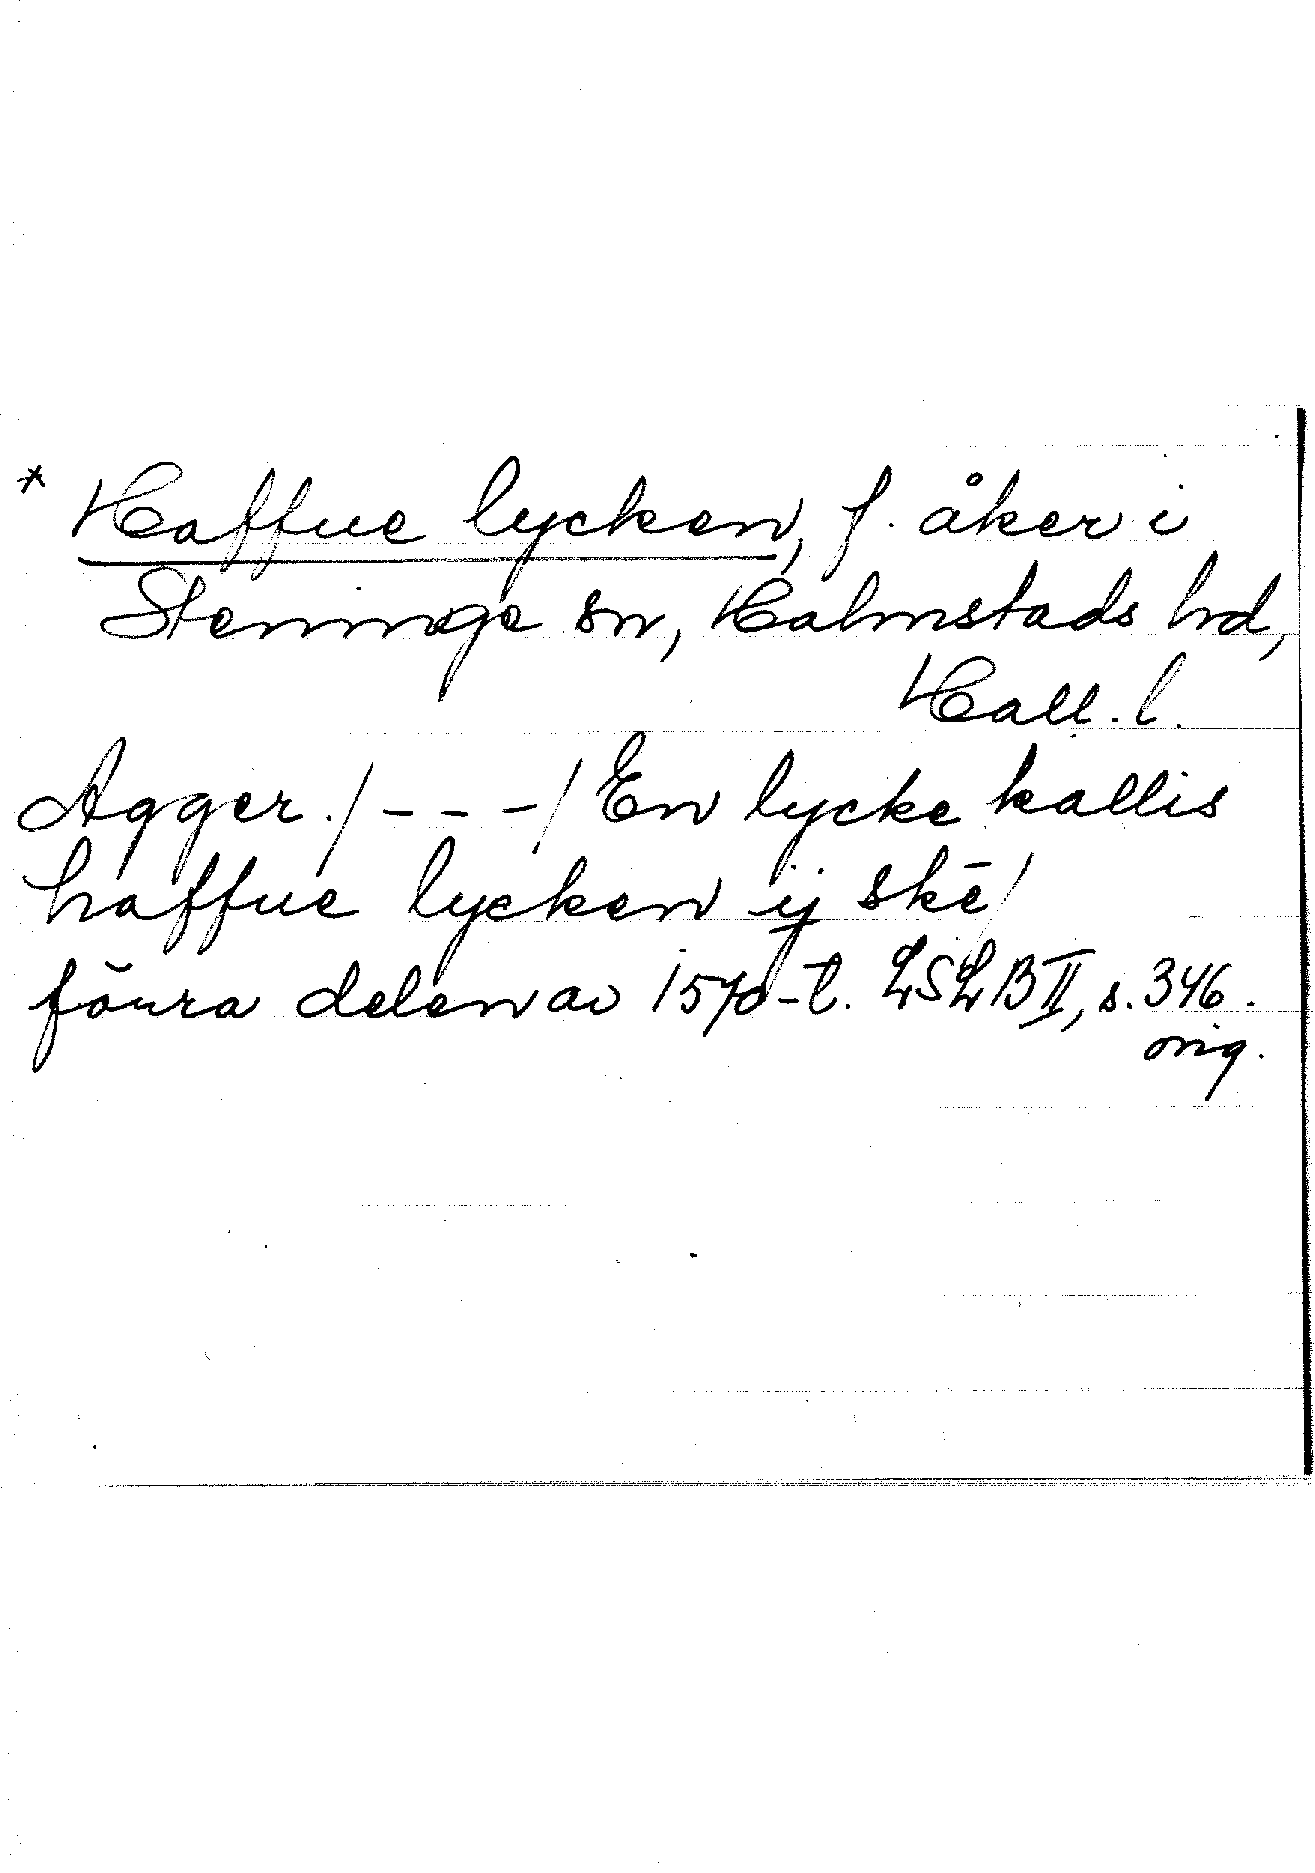 * Haffue lycken, f. åker i
Steninge sn, Halmstads hd,
Hall. l.
Agger. /---/ En lycke kallis
haffue lycken ij skē/
förra delen av 1570-t. LSLB II, s. 346.
orig.